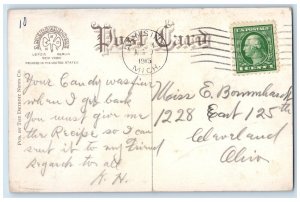 10
Post Card
LEIPZIG BERLIN
NEW YORK
PUB. BY THE DETROIT NEWS CO.
1913
MICH.
Your Candy was fine
when I got back
You must give me
the Recipe so I can
sent it to my Friend
Regards to all
A. H.
Miss E.
1228 East 125th
Cleveland
Ohio